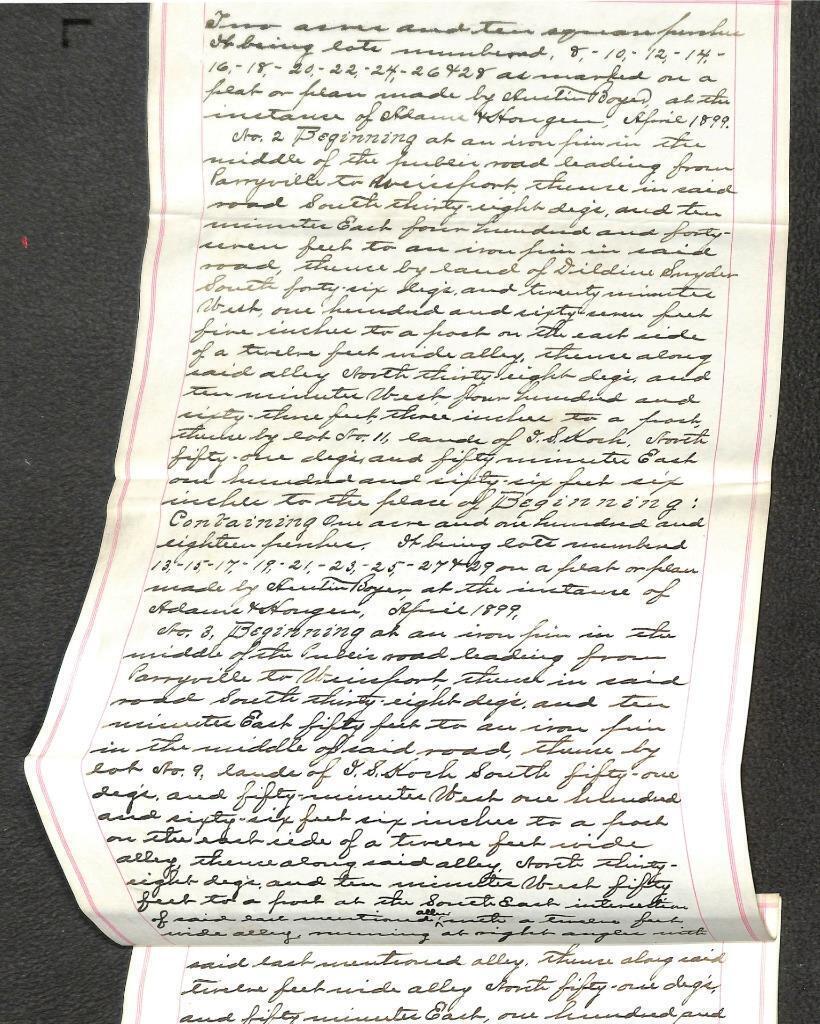 Two acres and ten square perches
It being lots numbered, 8,-10,-12,-14,-
16,-18,-20,-22,-24,-26 & 28 as marked on a
plat or plan made by Austin Boyer, at the
instance of Adams & Hongen, April 1899.
No. 2 Beginning at an iron pin in the
middle of the public road leading from
Parryville to Weissport, thence in said
road South thirty-eight deg's, and ten
minutes East four hundred and forty-
seven feet to an iron pin in said
road, thence by land of Dildine Snyder
South forty-six deg's, and twenty minutes
West, one hundred and sixty-seven feet
five inches to a post on the east side
of a twelve feet wide alley, thence along
said alley North thirty-eight deg's, and
ten minutes West four hundred and
sixty-three feet, three inches to a post,
thence by lot No. 11, lands of I. S. Koch, North
fifty-one deg's, and fifty minutes East
one hundred and sixty-six feet six
inches to the place of Beginning:
Containing One acre and one hundred and
eighteen perches. It being lots numbered
13,-15,-17,-19,-21,-23,-25,-27 & 29 on a plat or plan
made by Austin Boyer at the instance of
Adams & Hongen, April 1899.
No. 3, Beginning at an iron pin in the
middle of the Public road leading from
Parryville to Weissport, thence in said
road South thirty-eight deg's, and ten
minutes East fifty feet to an iron pin
in the middle of said road, thence by
lot No. 9, lands of I. S. Koch South fifty-one
deg's, and fifty-minutes West one hundred
and sixty-six feet six inches to a post
on the east side of a twelve feet wide
alley, thence along said alley, North thirty-
eight deg's, and ten minutes West fifty
feet to a post at the South East intersection
of said last mentioned alley with a twelve feet
wide alley, running at right angles with
said last mentioned alley, thence along said
twelve feet wide alley North fifty-one deg's,
and fifty minutes East, one hundred and